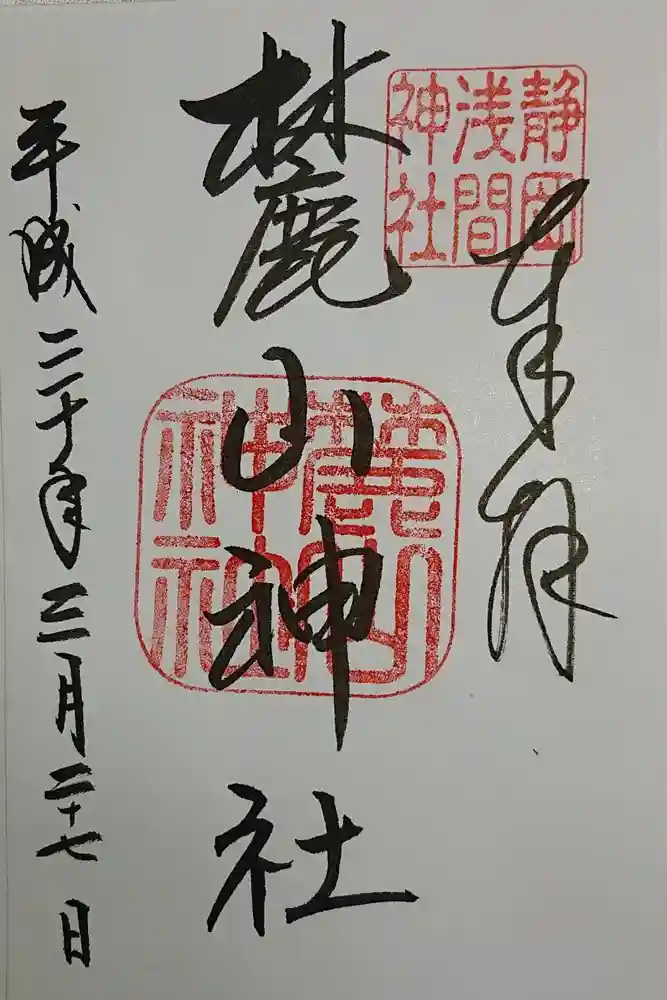 奉拝
静岡
浅間
神社
麓山神社
麓山
神社
平成二十年三月二十七日